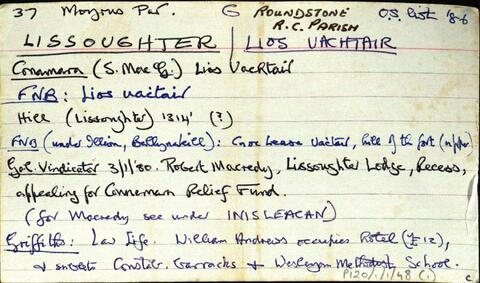 37 Moyrus Par. G ROUNDSTONE R.C. PARISH O.S. list '86
LISSOUGHTER | LIOS UACHTAIR
Connemara (S. Mac G.) Lios Uachtair
FNB: Lios uaċtair
Hill (Lissoughter) 1314' (?)
FNB (under Illion, Ballynahill): Cnoc Leasa Uaċtar, hill of the fort (upper)
Gal. Vindicator 3/1/'80. Robert Macredy, Lissoughter Lodge, Recess,
appealing for Connemara Relief Fund.
(for Macredy see under INISLEACAN)
Griffiths: Law Life. William Andrews occupies Hotel (£12),
& sublets Constab. Barracks & Wesleyan Methodist School.
P120/1/1/48 (1) c.